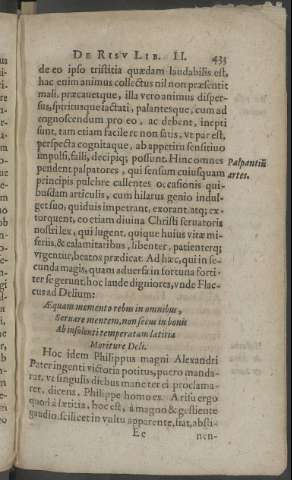 DE RISV LIB. II. 433
de eo ipso tristitia quædam laudabilis est,
hac enim animus collectus nil non præsentit
mali, præcauetque, illa vero animus disper-
sus, spiritusque iactati, palantesque, cum ad
cognoscendum pro eo, ac debent, inepti
sunt, tam etiam facile re non satis, vt par est,
perspecta cognitaque, ab appetitu sensitiuo
impulsi, falli, decipiq; possunt. Hinc omnes
pendent palpatores, qui sensum cuiusquam
principis pulchre callentes occasionis qui-
busdam articulis, cum hilarus genio indul-
get suo, quiduis impetrant, exorant atq; ex-
torquent, eo etiam diuina Christi seruatoris
nostri lex, qui lugent, quique huius vitæ mi-
seriis, & calamitatibus, libenter, patienterq;
vrgentur, beatos prædicat. Ad hæc, qui in se-
cunda magis, quam aduersa in fortuna forti-
ter se gerunt, hoc laude digniores, vnde Flac-
cus ad Delium:
Æquam memento rebus in omnibus,
Seruare mentem, non secus in bonis
Ab insolenti temperatam lætitia
Moriture Deli.
Hoc idem Philippus magni Alexandri
Pater ingenti victoria potitus, puero manda-
rat, vt singulis diebus mane ter ei proclama-
ret, dicens, Philippe homo es. A risu ergo
quori à lætitia, hoc est, à magno & gestiente
gaudio, scilicet in vultu apparente, fiat, absti-
Ee
nen-
Palpantiũ
artes.